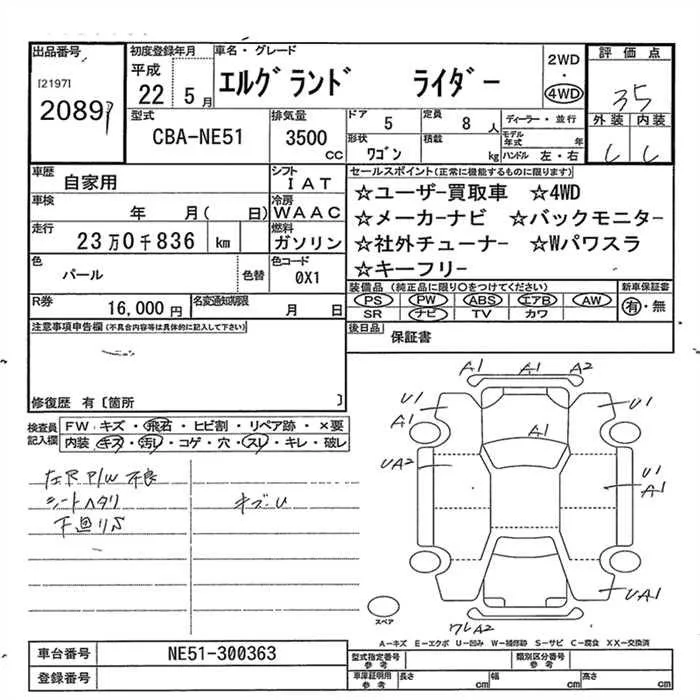 出品番号
[2197]
2089
初度登録年月
平成
22 5月
車名・グレード
エルグランド ライダー
2WD
・
4WD
評価点
35
外装 内装
型式
CBA-NE51
排気量
3500 CC
ドア 5
定員 8人
形状 ワゴン
積載 kg
ディーラー・並行
モデル年式 年
ハンドル 左・右
車歴 自家用
シフト IAT
車検 年 月( 日)
冷房 WAAC
走行 23万0千836 km
燃料 ガソリン
色 パール 色替
色コード 0X1
R券 16,000円
名変通知期限 月 日
セールスポイント(正常に機能するものに限ります)
☆ユーザー買取車 ☆4WD
☆メーカーナビ ☆バックモニター
☆社外チューナー ☆Wパワスラ
☆キーフリー
装備品(純正品に限り○をつけてください)
PS PW ABS エアB AW
SR ナビ TV カワ
新車保証書
有・無
後日品 保証書
注意事項申告欄(不具合内容等は具体的に記入して下さい)
修復歴 有〔箇所 〕
検査員記入欄
FW キズ・飛石・ヒビ割・リペア跡・×要
内装 キズ・汚レ・コゲ・穴・スレ・キレ・破レ
左R P/W 不良
シートヘタリ
下廻りS
キズ・U
A1 A1 A2
U1 A1
U1
A1
UA2
U1
A1
UA1
ワレA2
スペア
A-キズ E-エクボ U-凹み W-補修跡 S-サビ C-腐食 XX-交換済
車台番号 NE51-300363
登録番号
型式指定番号 参考
類別区分番号 参考
車庫証明用 参考
長さ cm
幅 cm
高さ cm